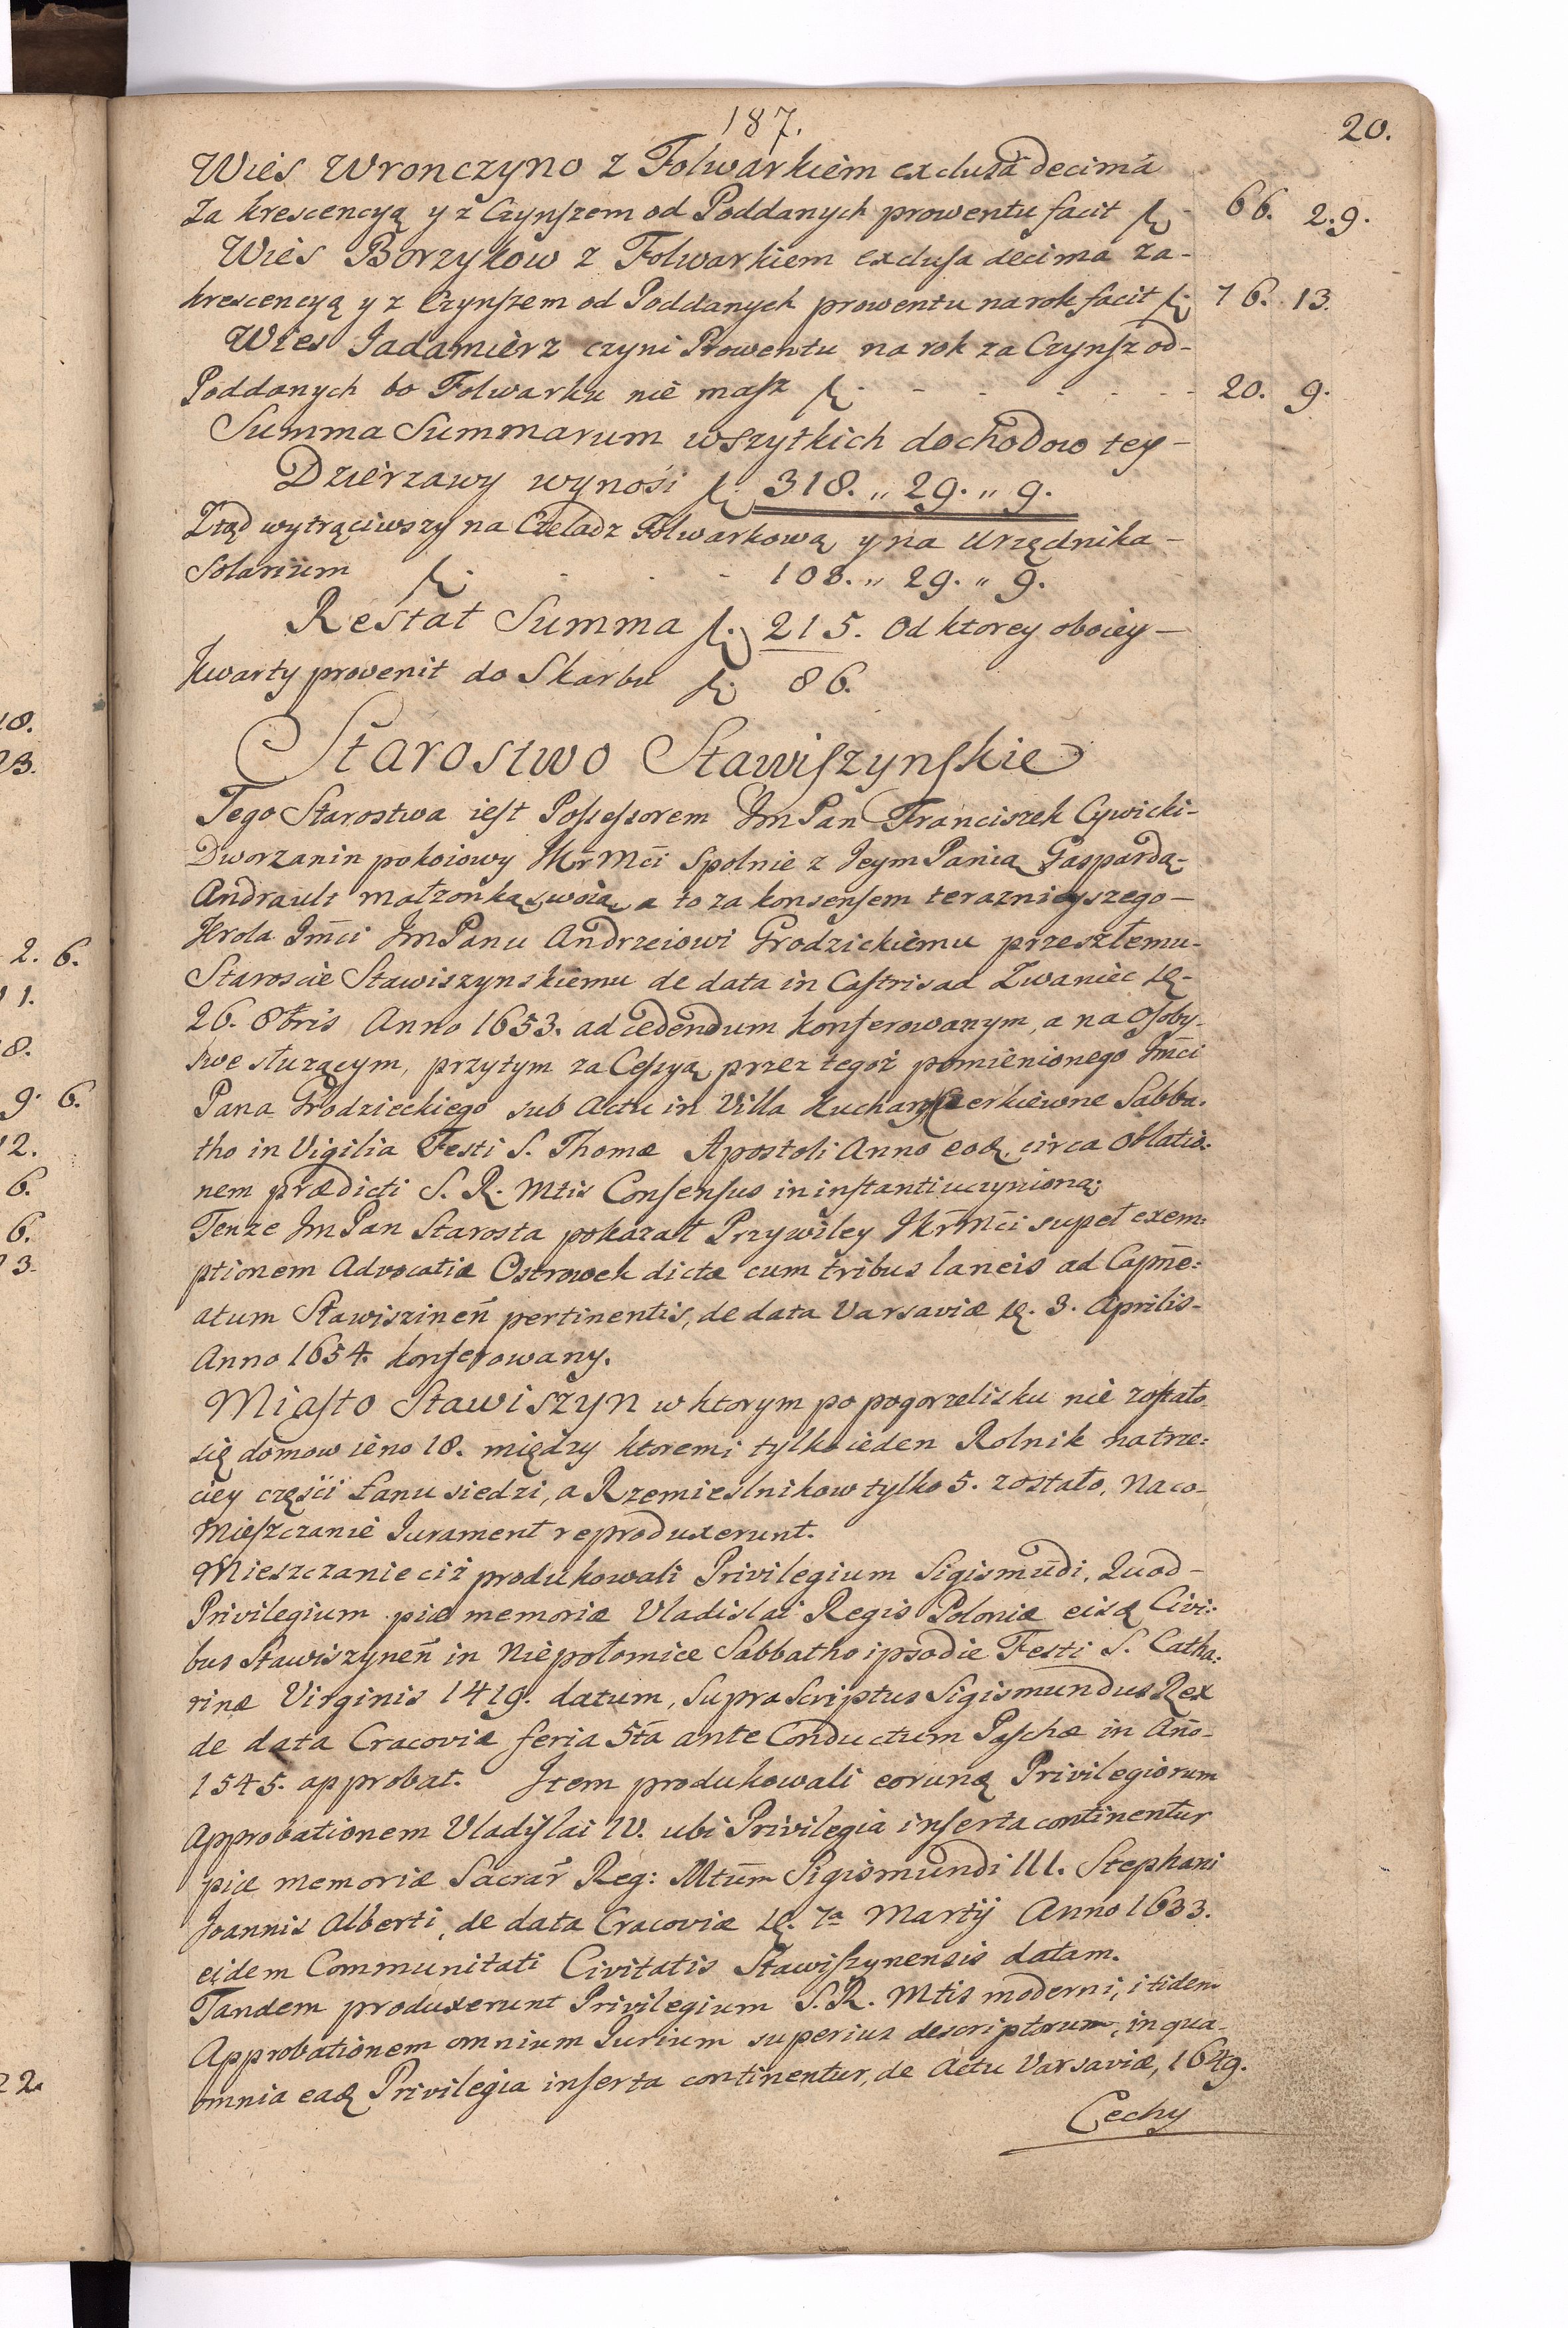 187.
20.
Wies Wronczyno z Folwarkiem exclusa decima
Za krescencyą y z Czynszem od Poddanych prowentu facit f. 66. 2.9.
Wies Borzykow z Folwarkiem exclusa decima za-
krescencyą y z Czynszem od Poddanych prowentu na rok facit f. 76. 13.
Wies Jadamierz czyni Prowentu na rok za Czynsz od-
Poddanych bo Folwarku nie masz f. - - - - - 20. 9.
Summa Summarum wszytkich dochodow tey-
Dzierzawy wynosi f. 318. „ 29. „ 9.
Ztąd wytrąciwszy na Czeladz Folwarkową y na Urzędnika-
Solarium f. - - - 108. „ 29. „ 9.
Restat Summa f. 215. Od ktorey oboiey-
kwarty provenit do Skarbu f. 86.
Starostwo Stawiszynskie
Tego Starostwa iest Possessorem Jm Pan Franciszek Cywicki-
Dworzanin pokoiowy JKr Mci Spolnie z Jeym Panią Gaspardą-
Andrault małzonką swoią, a to za konsensem teraznieyszego-
Krola Jmci Jm Panu Andrzeiowi Grodzickiemu przeszłemu-
Staroscie Stawiszynskiemu de data in Castris ad Zwaniec d.-
26. 8bris Anno 1653. ad cedendum konferowanym, a na Osoby-
swe słuzącym, przytym za Cessyą przez tegoż pomienionego Jmci
Pana Grodzieckiego sub Actu in Villa Kuchary Cerkiewne Sabba:
tho in Vigilia Festi S. Thomæ Apostoli Anno eoq, circa Oblatio:
nem prædicti S. R. Mtis Consensus in instanti uczynioną.
Tenze Jm Pan Starosta pokazał Przywiley JKr Mci super exem:
ptionem Advocatiæ Ostrowek dictæ cum tribus laneis ad Capne:
atum Stawiszinen̄ pertinentis, de data Varsaviæ d. 3. Aprilis-
Anno 1654. konferowany.
Miasto Stawiszyn w ktorym po pogorzelisku nie zostało
się domow ieno 18. między ktoremi tylko ieden Rolnik na trze:
ciey części Łanu siedzi, a Rzemieslnikow tylko 5. zostało, Na co-
Mieszczanie Jurament reproduxerunt.
Mieszczanie ciż produkowali Privilegium Sigismūdi, Quod-
Privilegium piæ memoriæ Vladislai Regis Poloniæ eisq Civi:
bus Stawiszynen̄ in Niepołomice Sabbatho ipso die Festi S. Catha:
rinæ Virginis 1419. datum, supra scriptus Sigismundus Rex
de data Cracoviæ feria 5ta ante Conductum Paschæ in Año-
1545. approbat. Item produkowali eorunq Privilegiorum
Approbationem Vladislai IV. ubi Privilegia inserta continentur
piæ memoriæ Sacrar̄ Reg: Mtūm Sigismundi III. Stephani
Joannis Alberti, de data Cracoviæ d. 7a Martij Anno 1633.
eidem Communitati Civitatis Stawiszynensis datam.
Tandem produxerunt Privilegium S. R. Mtis moderni, itidem
Approbationem omnium Jurium superius descriptorum, in qua
omnia eaq Privilegia inserta continentur, de Actu Varsaviæ, 1649.
Cechy
18.
23.
2. 6.
11.
8.
9. 6.
12.
6.
6.
3.
22.